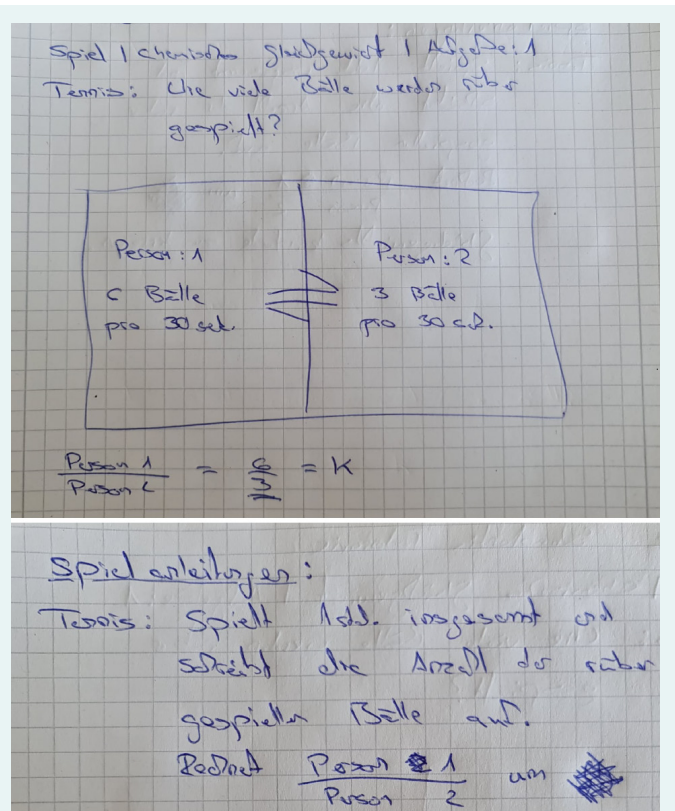 Spiel | chemisches Gleichgewicht | Aufgabe: 1
Tennis: Wie viele Bälle werden rüber
gespielt?
Person: 1
6 Bälle
pro 30 sek.
Person: 2
3 Bälle
pro 30 sek.
Person 1 / Person 2 = 6 / 3 = K
Spielanleitungen:
Tennis: Spielt 1 Std. insgesamt und
schreibt die Anzahl der rüber
gespielten Bälle auf.
Rechnet Person 1 / Person 2 um